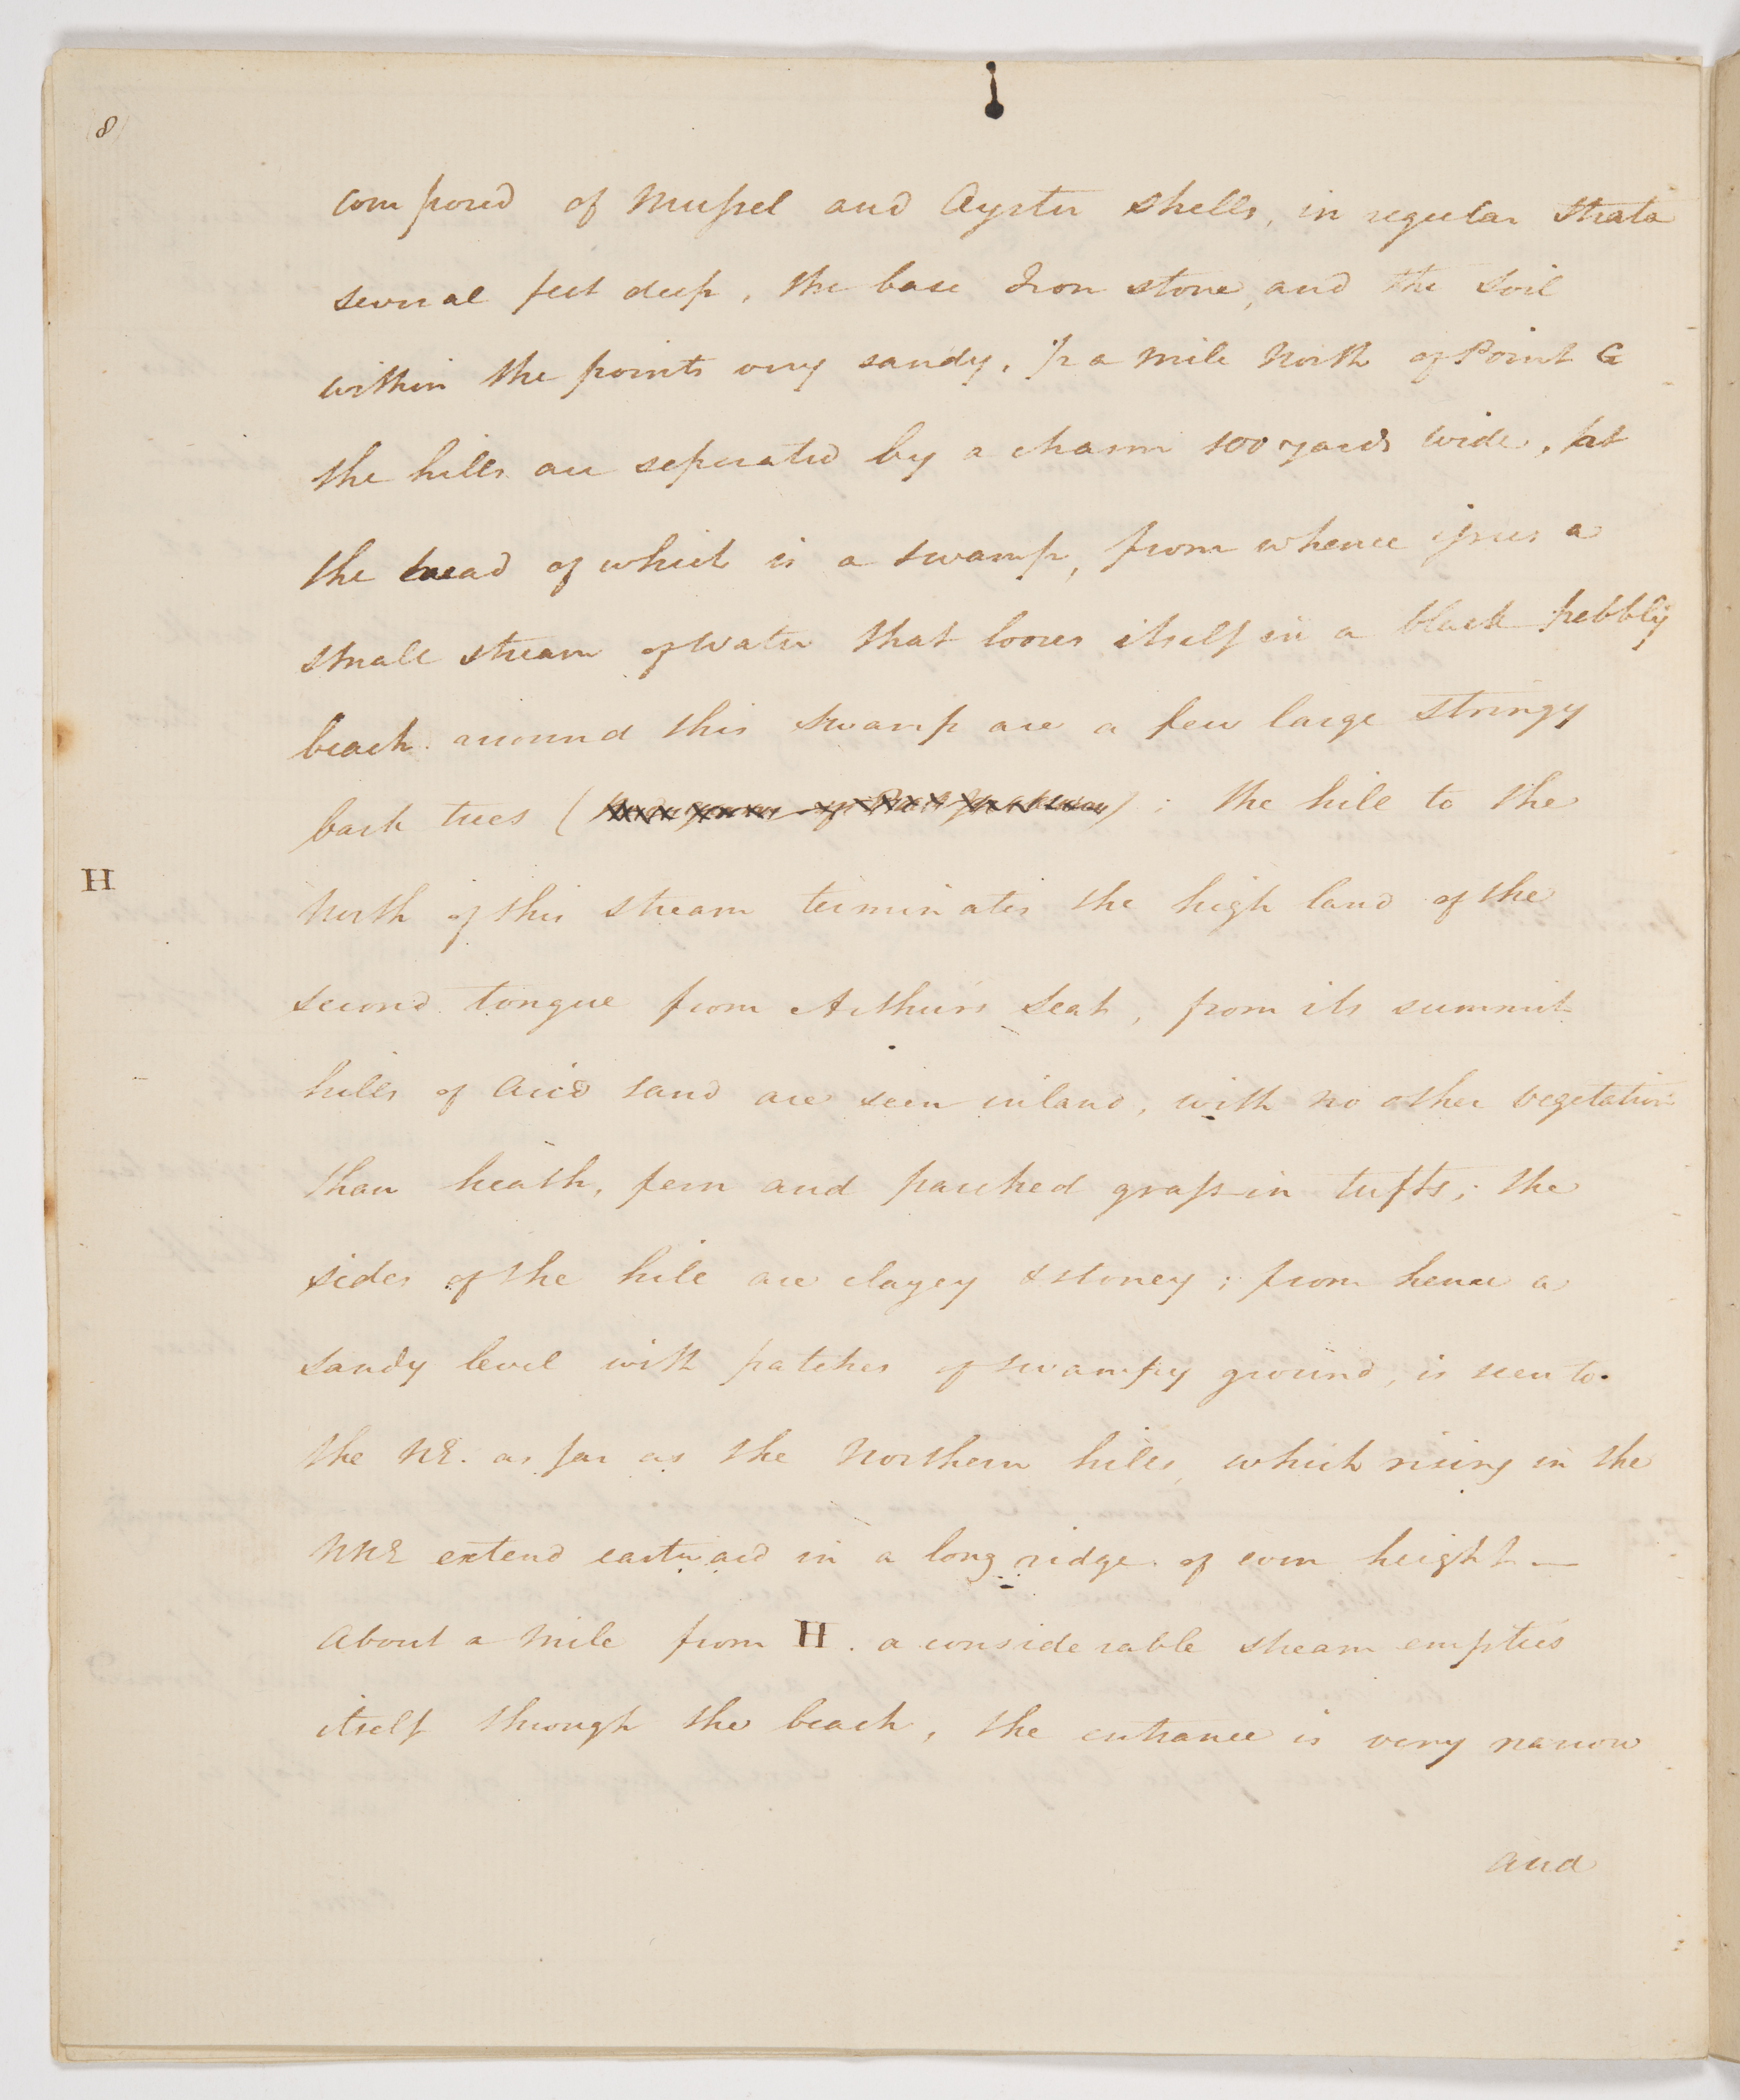 8
composed of Mussel and Oyster shells, in regular strata
several feet deep, the base Iron stone, and the soil
within the points very sandy. 1/2 a mile North of Point G
the hills are seperated by a chasm 100 yards wide, at
the head of which is a swamp, from whence issues a
small stream of water that looses itself in a black pebbly
beach. around this swamp are a few large stringy
bark trees ( ) ; the hill to the
H
North of this stream terminates the high land of the
second tongue from Arthurs Seat, from its summit
hills of arid sand are seen inland, with no other vegetation
than heath, fern and parched grass in tufts; the
sides of the hill are clayey & stoney; from hence a
sandy level with patches of swampy ground, is seen to
the NE. as far as the Northern hills, which rising in the
NNE extend eastward in a long ridge of even height —
About a mile from H. a considerable stream empties
itself through the beach, the entrance is very narrow
and